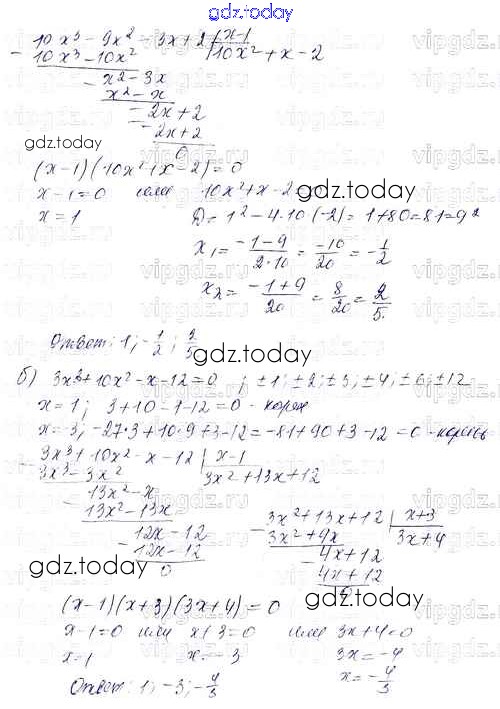 gdz.today
10x³ - 9x² - 3x + 2 | x-1
- 10x³ - 10x² | 10x² + x - 2
x² - 3x
- x² - x
- 2x + 2
- - 2x + 2
0
gdz.today
(x-1)(10x² + x - 2) = 0
x - 1 = 0 или 10x² + x - 2 = 0
gdz.today
x = 1 D = 1² - 4·10·(-2) = 1 + 80 = 81 = 9²
x₁ = (-1-9)/(2·10) = -10/20 = -1/2
x₂ = (-1+9)/20 = 8/20 = 2/5.
Ответ: 1; -1/2; 2/5
gdz.today
б) 3x³ + 10x² - x - 12 = 0 ; ±1; ±2; ±3; ±4; ±6; ±12
x = 1; 3 + 10 - 1 - 12 = 0 - корень
x = -3; -27·3 + 10·9 + 3 - 12 = -81 + 90 + 3 - 12 = 0 - корень
3x³ + 10x² - x - 12 | x-1
- 3x³ - 3x² | 3x² + 13x + 12
13x² - x
- 13x² - 13x
12x - 12
- 12x - 12
0
3x² + 13x + 12 | x+3
- 3x² + 9x | 3x+4
4x + 12
- 4x + 12
0
gdz.today
gdz.today
(x-1)(x+3)(3x+4) = 0
x - 1 = 0 или x + 3 = 0 или 3x + 4 = 0
x = 1 x = -3 3x = -4
x = -4/3
Ответ: 1; -3; -4/3
gdz.today